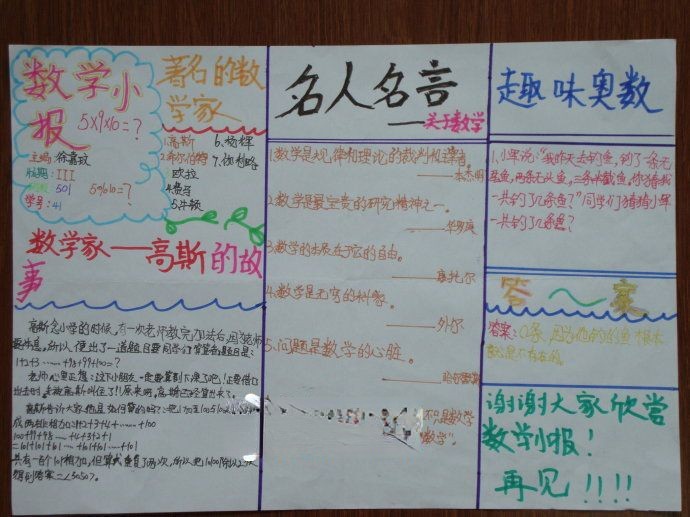 数学小
报
5×9×10=?
主编:徐嘉玟
版期:III
班级:501
学号:41
50%10=?
著名的数
学家
1.高斯
2.希尔伯特
欧拉
4.费马
5.牛顿
6.杨辉
7.伽利略
数学家——高斯的故
事
高斯念小学的时候,有一次老师教完加法后,因为老师
要休息,所以便出了一道题目要同学们算算看,题目是:
1+2+3 ...... +98+99+100=?
老师心里正想:这下小朋友一定要算到下课了吧!正要借口
出去时,却被高斯叫住了!!原来呀,高斯已经算出来了
高斯告诉大家他是如何算的吗?:把1加至100与100
成两排相加:1+2+3+4+ ...... +100
100+99+98 ... +4+3+2+1
=101+101+101 ... +101+101 ... +101
共有一百个101相加,但算式重复了两次,所以把10100除以2便
得到答案=<5050>.
名人名言
——关于数学
1.数学是规律和理论的裁判和译者。
——本杰明
2.数学是最宝贵的研究精神之一。
——华罗庚
3.数学的本质在于它的自由。
——康托尔
4.数学是无穷的科学。
——外尔
5.问题是数学的心脏。
不只是数学
"数学"。
趣味奥数
1.小军说:“我昨天去钓鱼,钓了一条无
尾鱼,两条无头鱼,三条半截鱼。你猜我
一共钓了几条鱼?”同学们猜猜小军
一共钓了几条鱼?
答~案
答案:0条,因为他钓的鱼根本
就是不存在的。
谢谢大家欣赏
数学小报!
再见!!!!